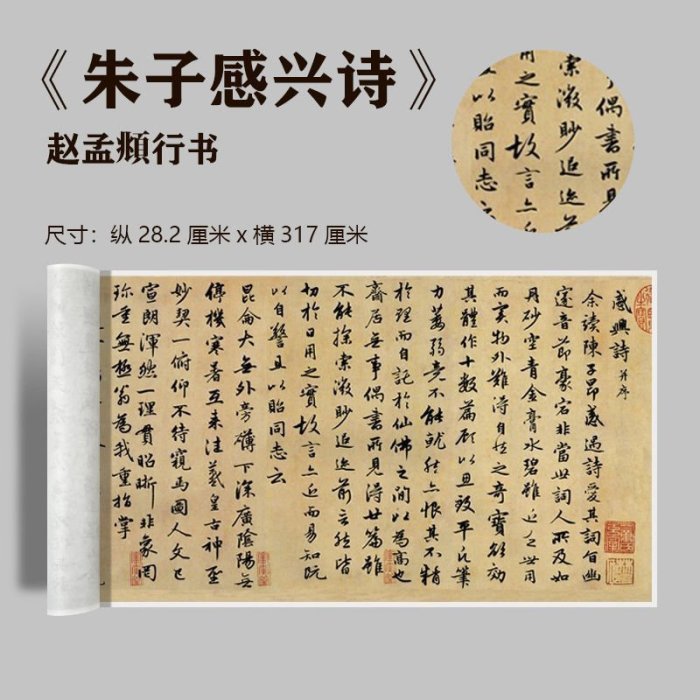 《朱子感兴诗》
赵孟頫行书
尺寸：纵 28.2 厘米 x 横 317 厘米
偶書所見
索微眇追迹前
用之實故言亦
以貽同志云
感興詩 并序
余讀陳子昂感遇詩愛其詞旨幽
邃音節豪宕非當世詞人所及如
丹砂空青金膏水碧雖近乏世用
而實物外難得自然之奇寶欲効
其體作十數篇顧以思致平凡筆
力萎弱竟不能就然亦恨其不精
於理而自託於仙佛之間以為高也
齋居無事偶書所見得廿篇雖
不能探索微眇追迹前言然皆
切於日用之實故言亦近而易知既
以自警且以貽同志云
昆侖大無外旁礴下深廣陰陽無
停機寒暑互來往羲皇古神聖
妙契一俯仰不待窺馬圖人文已
宣朗渾然一理貫昭晰非象罔
珍重無極翁為我重指掌